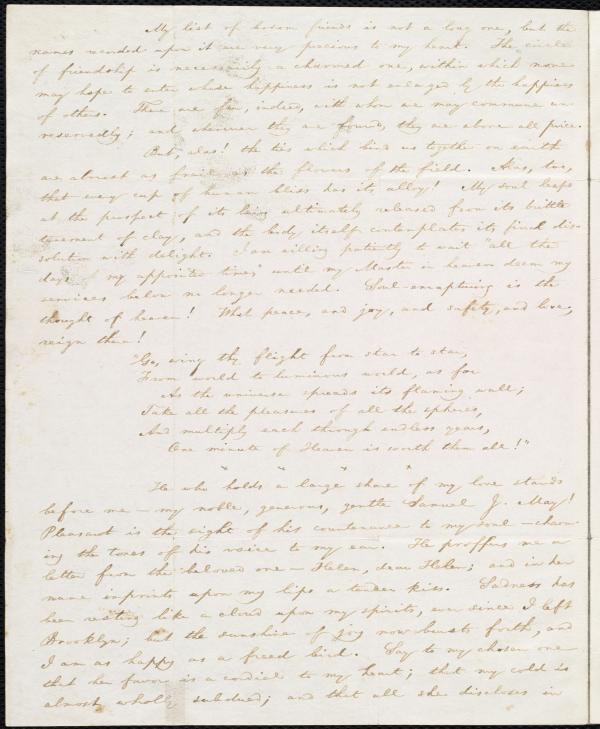 My list of bosom friends is not a long one, but the
names recorded upon it are very precious to my heart. The circle
of friendship is necessarily a charmed one, within which none
may hope to enter whose happiness is not enlarged by the happiness
of others. There are few, indeed, with whom we may commune un-
reservedly; and wherever they are found, they are above all price.
But, alas! the ties which bind us together on earth
are almost as frail as the flowers of the field. Alas, too,
that every cup of human bliss has its alloy! My soul leaps
at the prospect of its being ultimately released from its brittle
tenement of clay, and the body itself contemplates its final dis-
solution with delight. I am willing patiently to wait "all the
days of my appointed time," until my Master in heaven deem my
services below no longer needed. Soul-enrapturing is the
thought of heaven! What peace, and joy, and safety, and love,
reign there!
"Go, wing thy flight from star to star,
From world to luminous world, as far
As the universe spreads its flaming wall;
Take all the pleasures of all the spheres,
And multiply each through endless years,
One minute of Heaven is worth them all!"
" " " "
He who holds a large share of my love stands
before me — my noble, generous, gentle Samuel J. May!
Pleasant is the sight of his countenance to my soul — charm-
ing the tones of his voice to my ear. He proffers me a
letter from the beloved one — Helen, dear Helen; and in her
name imprints upon my lips a tender kiss. Sadness has
been resting like a cloud upon my spirits, ever since I left
Brooklyn; but the sunshine of joy now bursts forth, and
I am as happy as a freed bird. Say to my chosen one
that her favor is a cordial to my heart; that my cold is
almost wholly subdued; and that all she discloses in